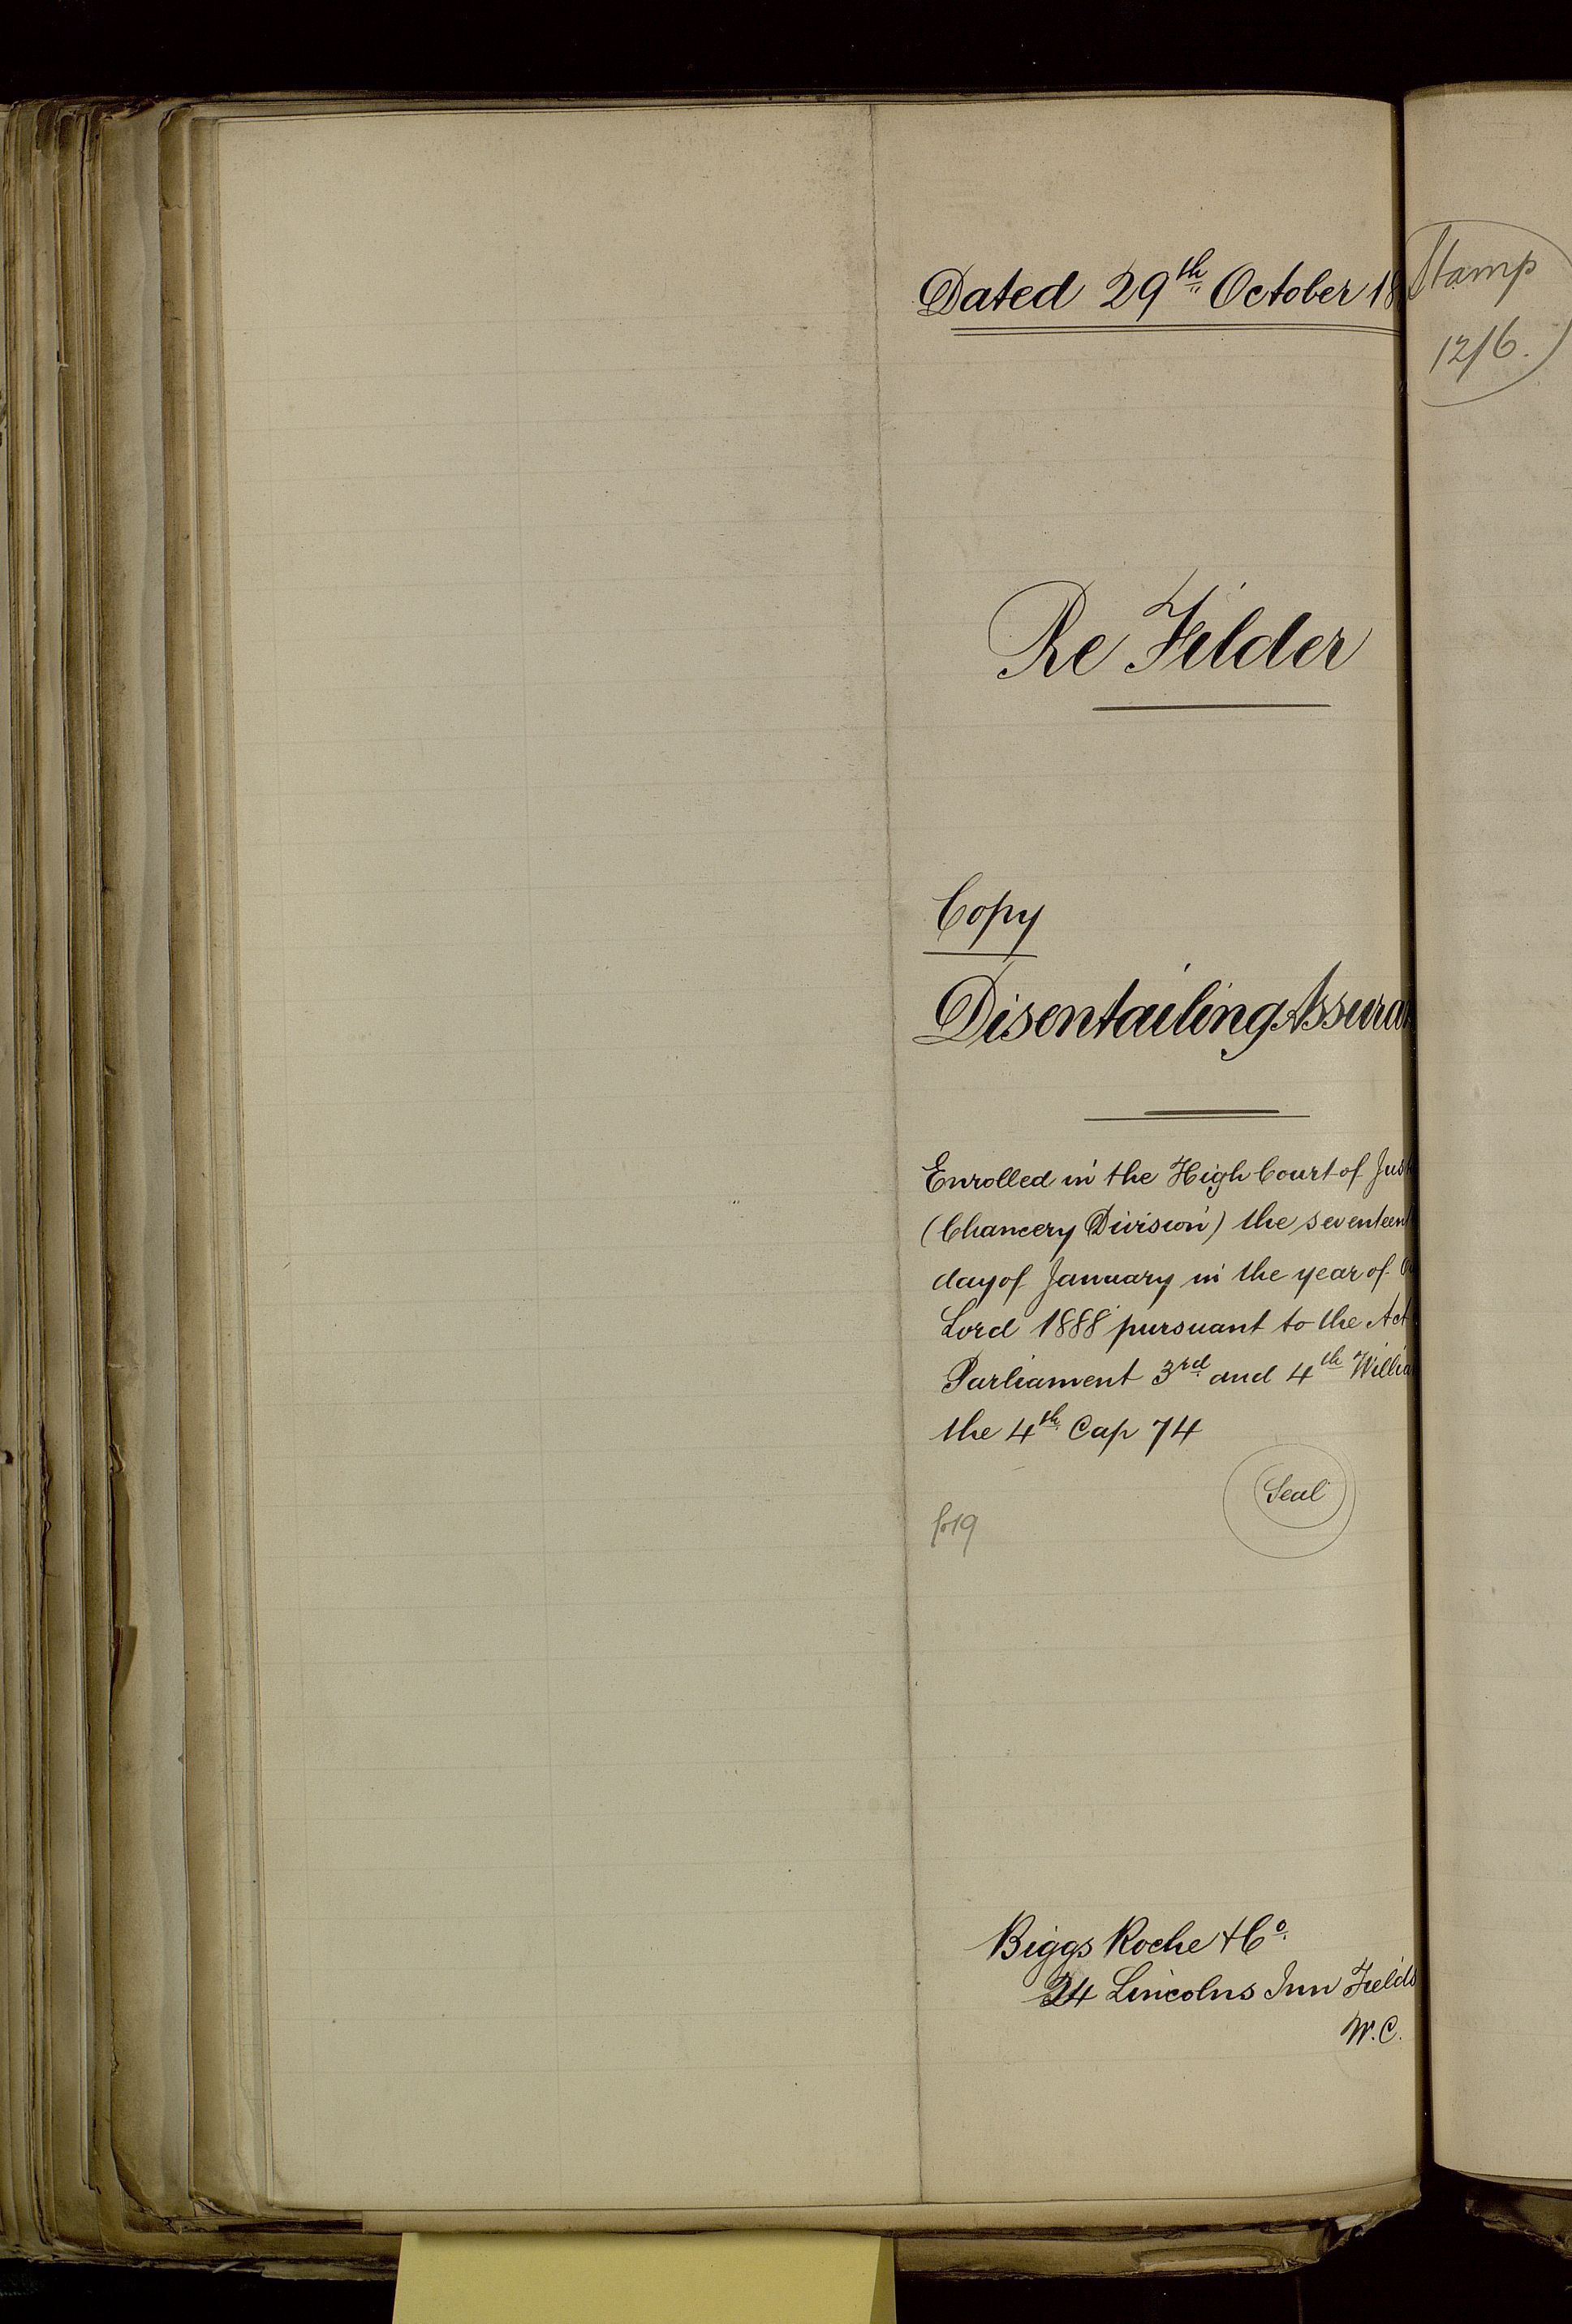 Dated 29th October 18
Re Filder
Copy
Disentailing Assuran
Enrolled in the High Court of Just
(Chancery Division) the seventeent
day of January in the year of O
Lord 1888 pursuant to the Act
Parliament 3rd and 4th Willia
the 4th Cap 74
Seal
fo 19
Biggs Roche & Co.
24 Lincolns Inn Fields
W.C.
Stamp
12/6.